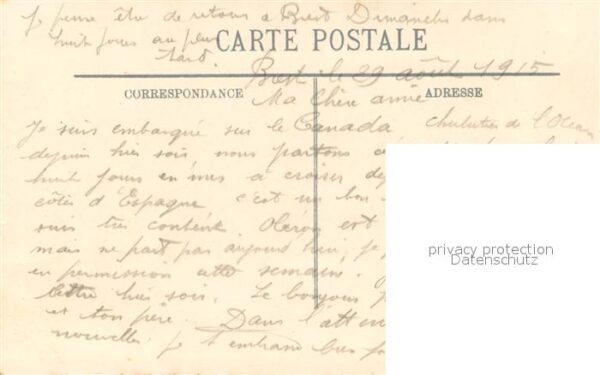 Je pense être de retour à Brest Dimanche dans
huit jours au plus
tard.
CARTE POSTALE
Brest le 29 août 1915
CORRESPONDANCE
ADRESSE
Ma Chère amie
Je suis embarqué sur le Canada chalutier de l'Océan
depuis hier soir nous partons
huit jours en mer à croiser
côtes d'Espagne c'est un bon
suis très content. Oléron est
mais ne part pas aujourd'hui, je
en permission cette semaine.
lettre hier soir. Le bonjour
et ton père. Dans l'atten
nouvelles. Je t'embrasse bien
privacy protection
Datenschutz